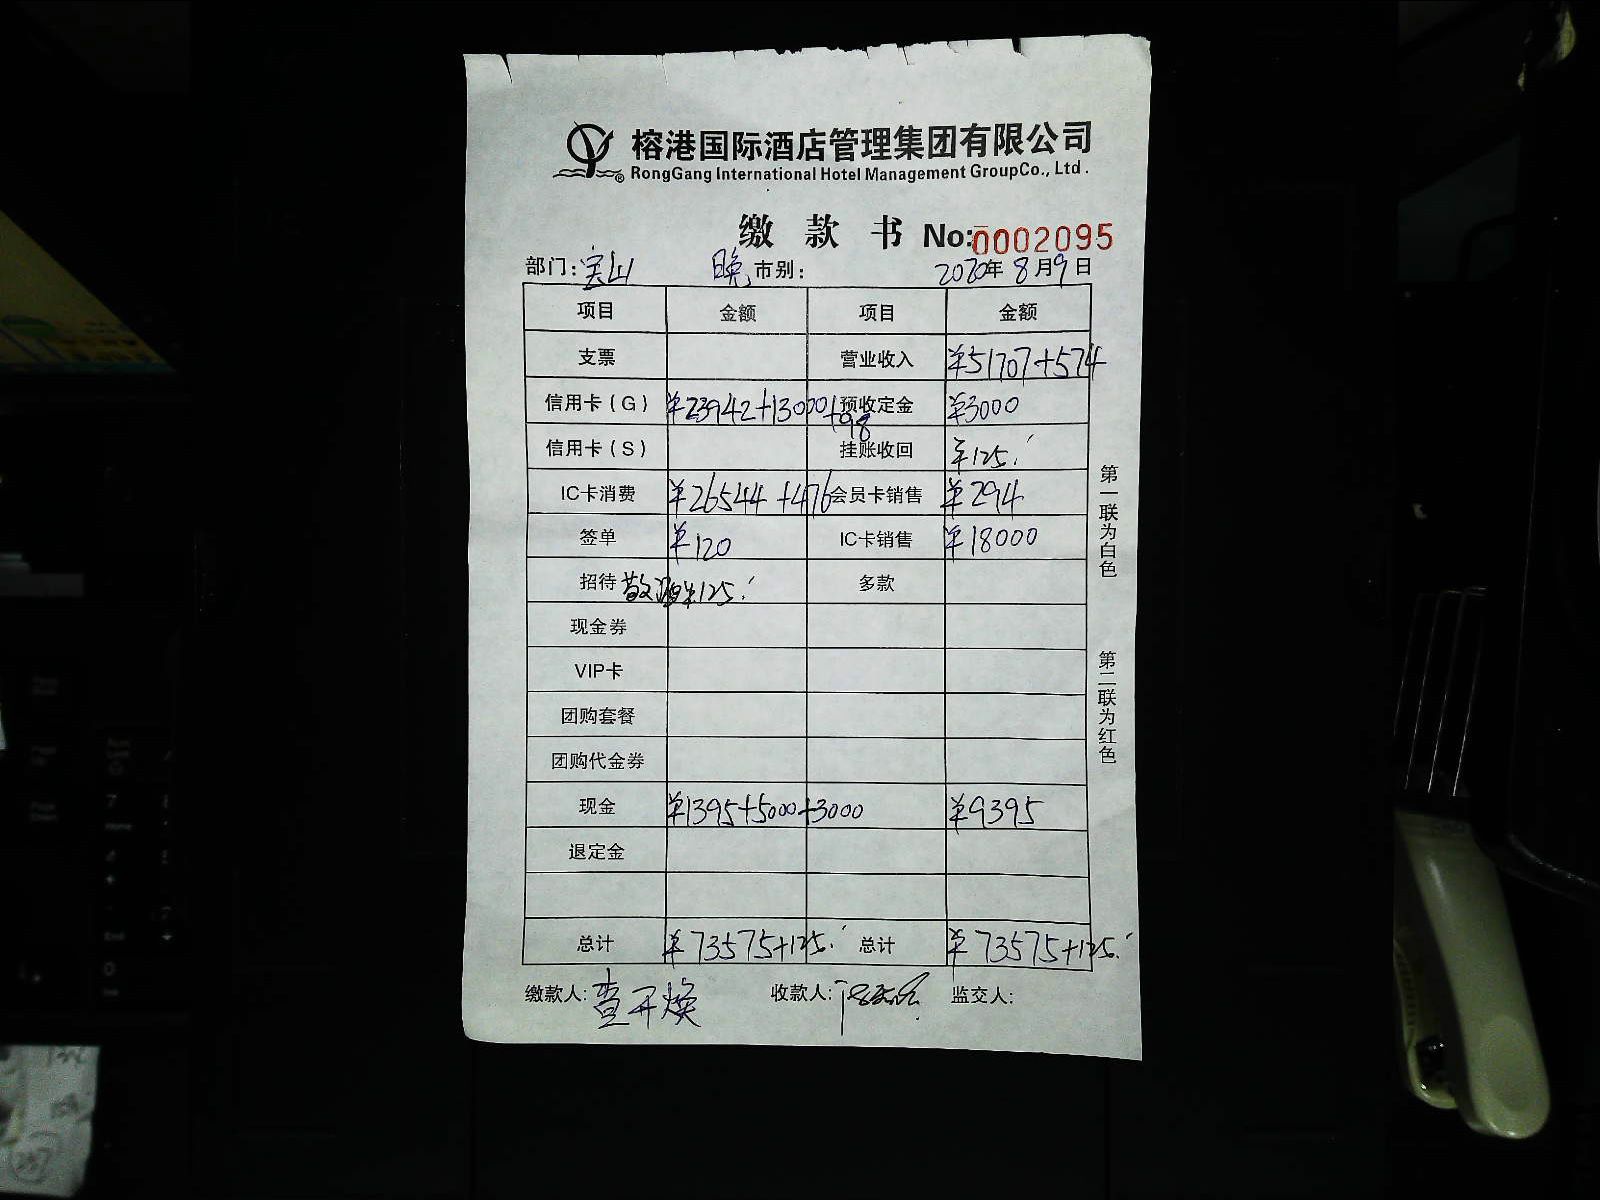 榕港国际酒店管理集团有限公司
RongGang International Hotel Management GroupCo., Ltd.
缴款书 No:0002095
部门:宝山 晚市别: 2020年8月9日
项目 金额 项目 金额
支票 营业收入 ¥51707+574
信用卡(G) ¥23942+13000+98 预收定金 ¥3000
信用卡(S) 挂账收回 ¥125.
IC卡消费 ¥26544+476 会员卡销售 ¥294
签单 ¥120 IC卡销售 ¥18000
招待 ¥125. 多款
现金券
VIP卡
团购套餐
团购代金券
现金 ¥1395+5000+3000 ¥9395
退定金
总计 ¥73575+125. 总计 ¥73575+125.
缴款人:查开焕 收款人: 监交人:
第一联为白色
第二联为红色